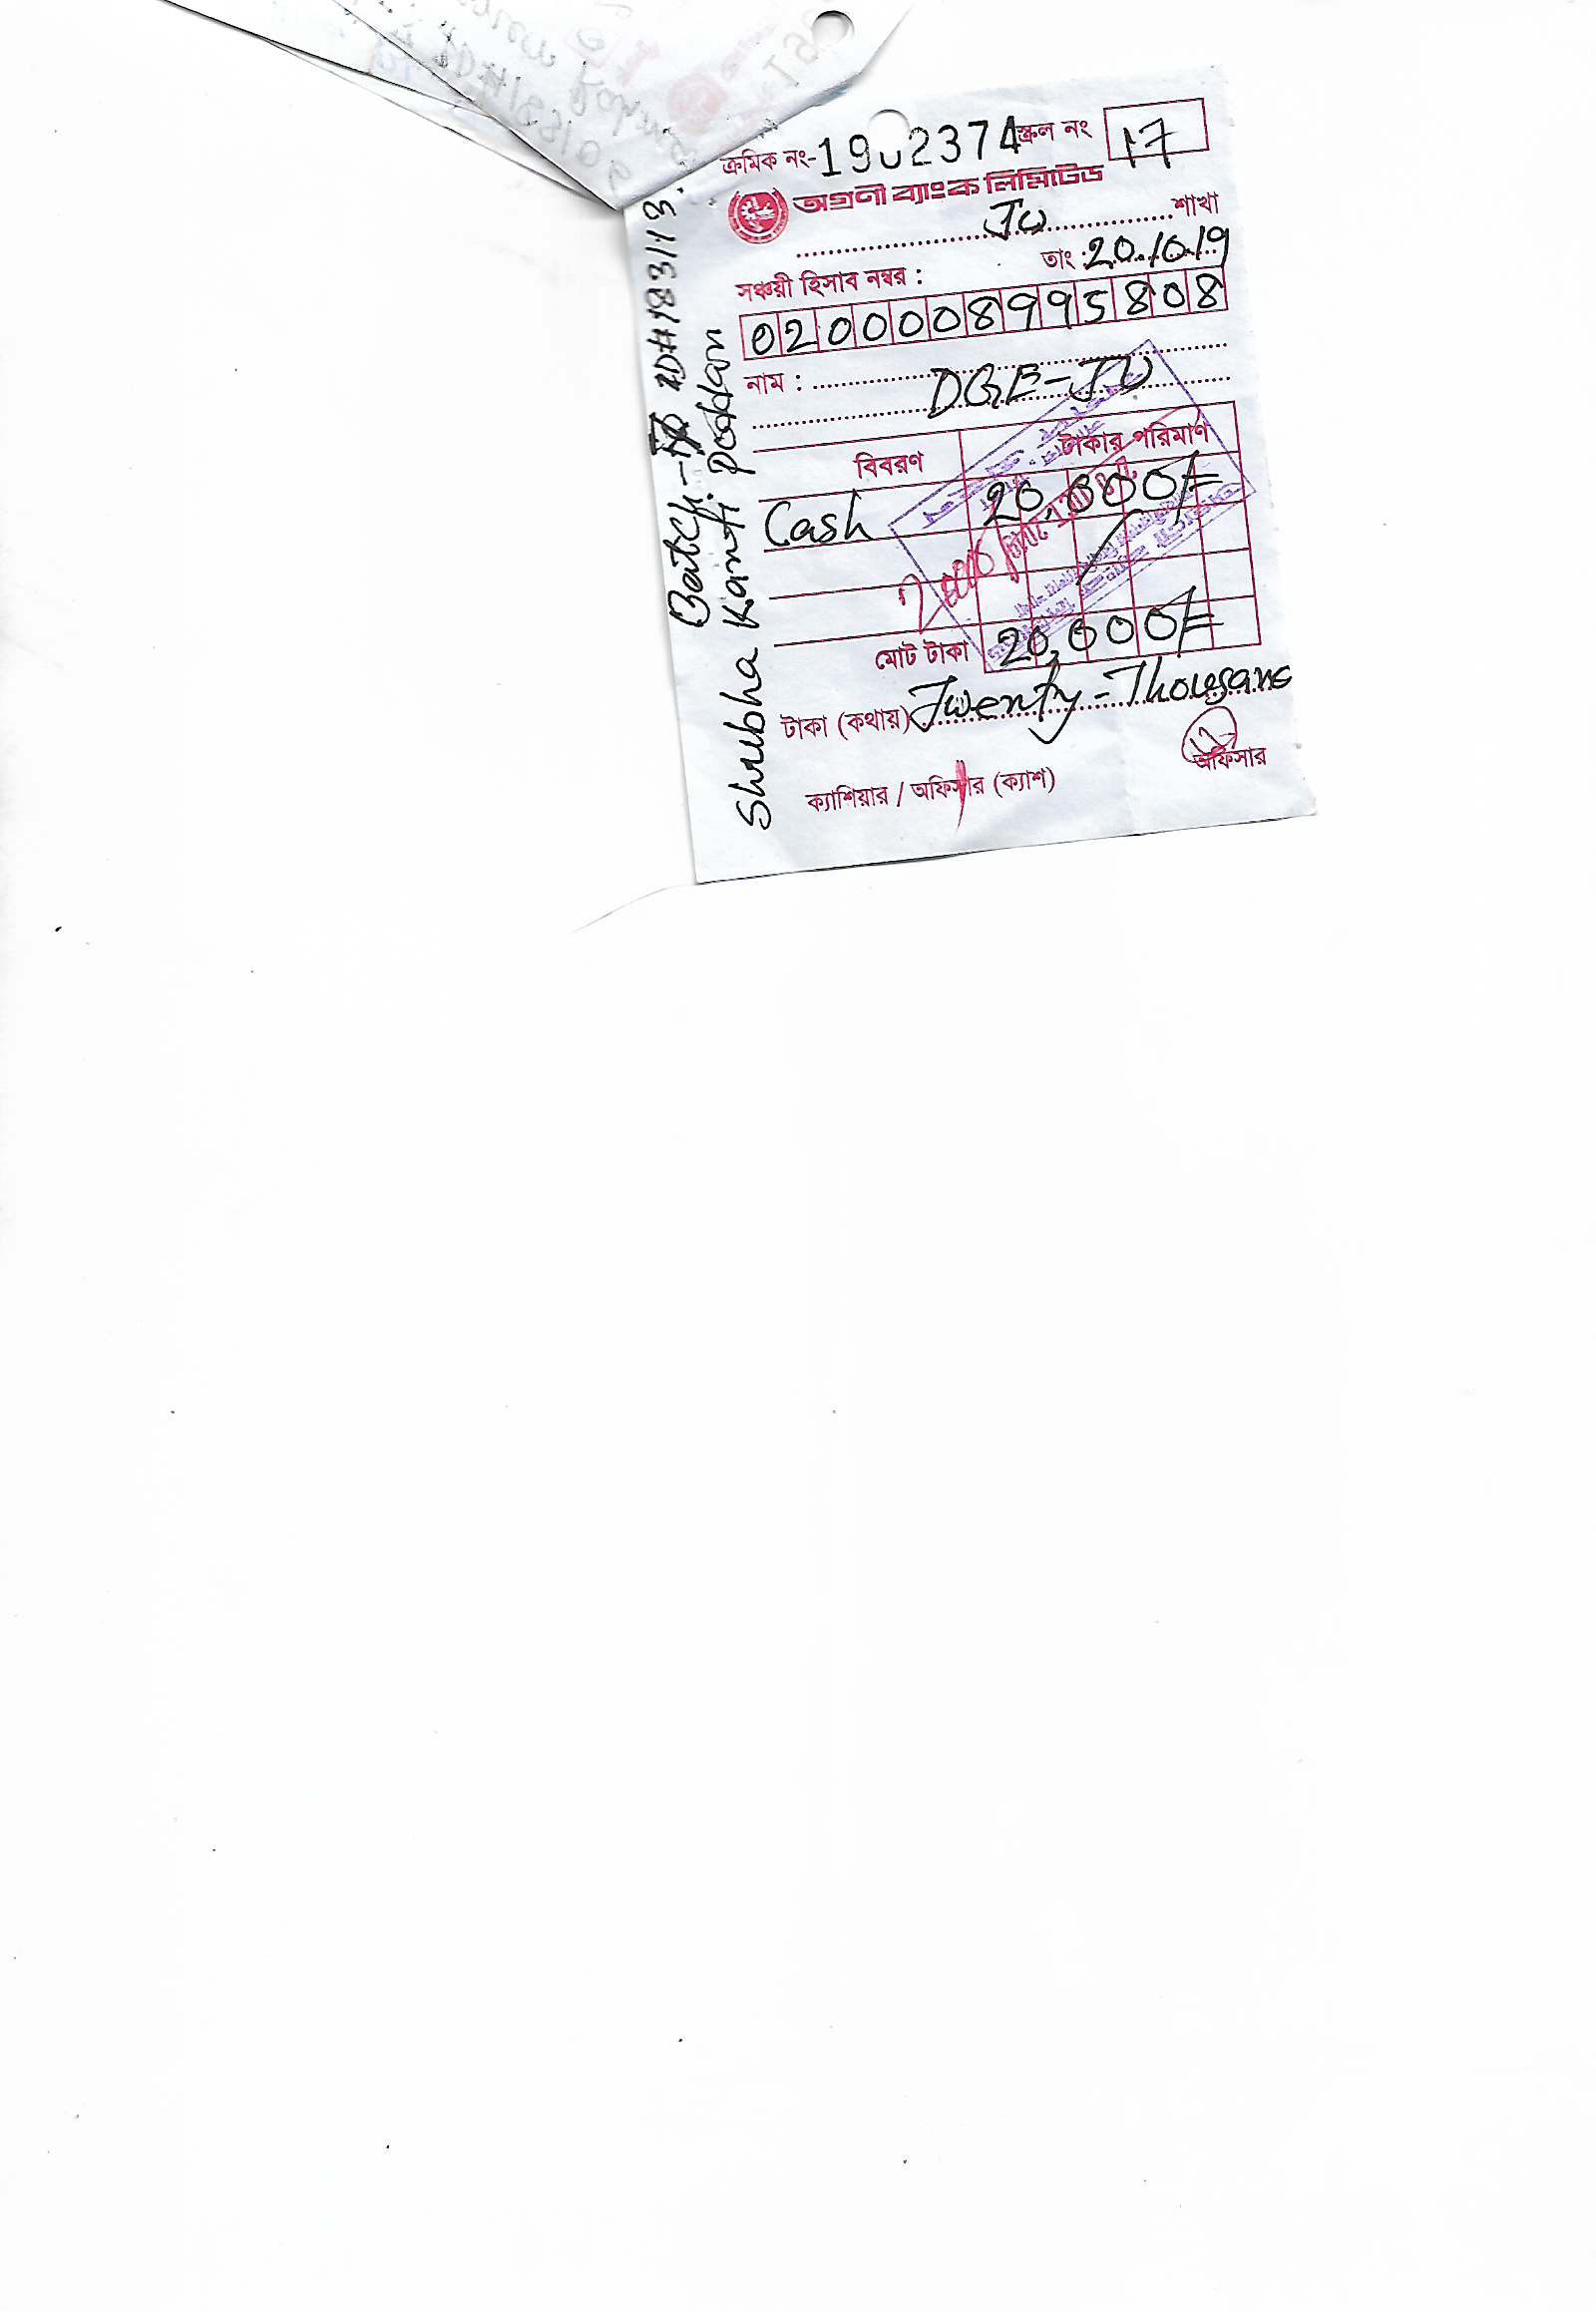 ক্রমিক নং-1902374 স্ক্রল নং 17
অগ্রণী ব্যাংক লিমিটেড
JU শাখা
তাং: 20.10.19
সঞ্চয়ী হিসাব নম্বর :
0200008995808
নাম : DGE-JU
বিবরণ টাকার পরিমাণ
Cash 20,000/=
মোট টাকা 20,000/=
টাকা (কথায়) Twenty-Thousand
অফিসার
ক্যাশিয়ার / অফিসার (ক্যাশ)
Batch-
Shubha Kanti Poddar